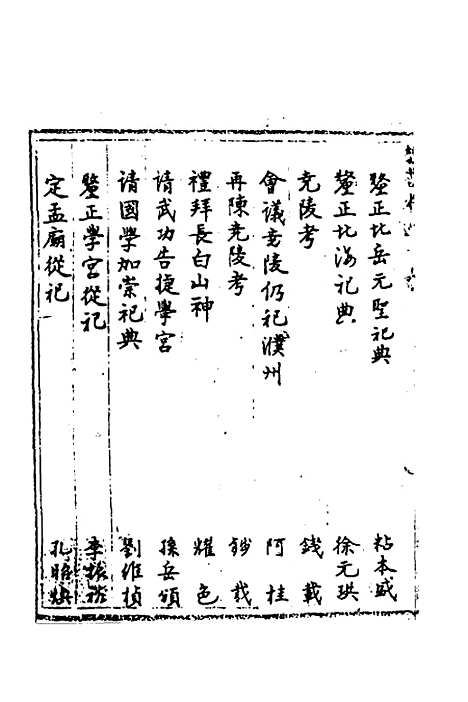 釐正北岳元聖祀典 粘本盛
釐正北海祀典 徐元珙
堯陵考 錢載
會議堯陵仍祀濮州 阿桂
再陳堯陵考 錢載
禮拜長白山神 耀色
请武功告捷學宮 孫岳頒
请國學加崇祀典 劉維楨
釐正學宮從祀 李振裕
定孟廟從祀 孔昭煥